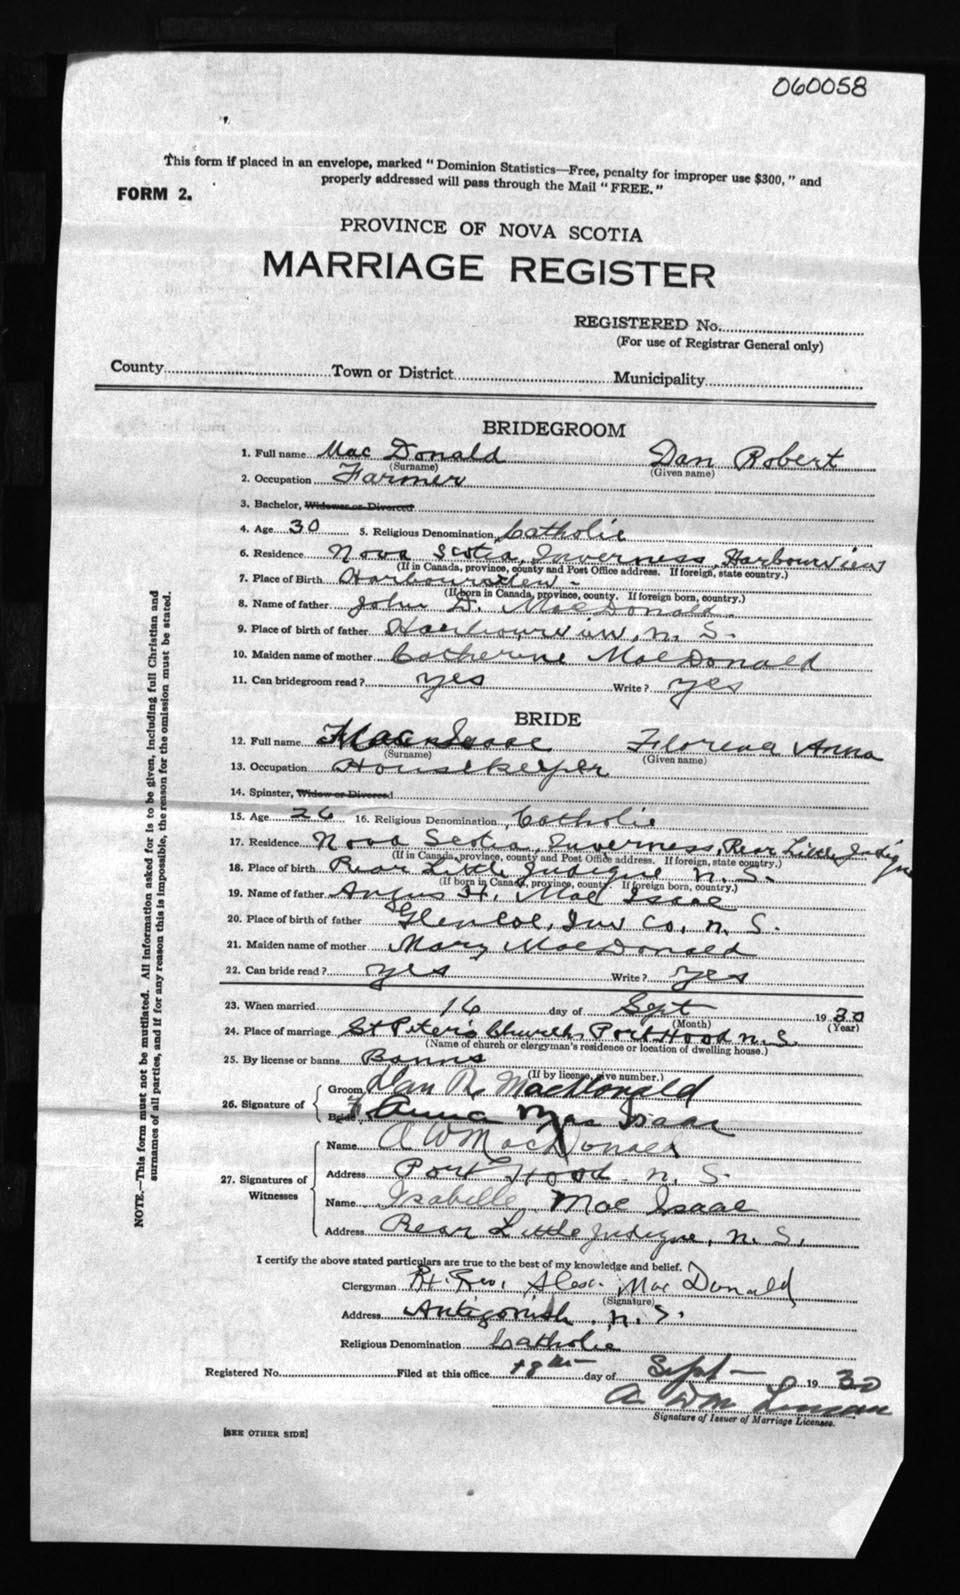 060058
This form if placed in an envelope, marked "Dominion Statistics—Free, penalty for improper use $300," and
properly addressed will pass through the Mail "FREE."
FORM 2.
PROVINCE OF NOVA SCOTIA
MARRIAGE REGISTER
REGISTERED No.
(For use of Registrar General only)
County Town or District Municipality
BRIDEGROOM
1. Full name Mac Donald Dan Robert
(Surname) (Given name)
2. Occupation Farmer
3. Bachelor, Widower or Divorced
4. Age 30 5. Religious Denomination Catholic
6. Residence Nova Scotia, Inverness, Harbourview
(If in Canada, province, county and Post Office address. If foreign, state country.)
7. Place of Birth Harbourview -
(If born in Canada, province, county. If foreign born, country.)
8. Name of father John D. MacDonald
9. Place of birth of father Harbourview, N. S.
10. Maiden name of mother Catherine MacDonald
11. Can bridegroom read? yes Write? yes
BRIDE
12. Full name MacIsaac Florena Anna
(Surname) (Given name)
13. Occupation Housekeeper
14. Spinster, Widow or Divorced
15. Age 26 16. Religious Denomination Catholic
17. Residence Nova Scotia, Inverness, Rear Little Judique
(If in Canada, province, county and Post Office address. If foreign, state country.)
18. Place of birth Rear Little Judique N. S.
(If born in Canada, province, county. If foreign born, country.)
19. Name of father Angus H. Mac Isaac
20. Place of birth of father Glencoe, Inv Co, N. S.
21. Maiden name of mother Mary MacDonald
22. Can bride read? yes Write? yes
23. When married 16 day of Sept 1930
(Month) (Year)
24. Place of marriage St Peter's Church, Port Hood N. S.
(Name of church or clergyman's residence or location of dwelling house.)
25. By license or banns Banns
(If by license, give number.)
26. Signature of Groom Dan R. MacDonald
Bride F. Anna Mac Isaac
27. Signatures of Witnesses Name A W MacDonald
Address Port Hood. N. S.
Name Isabelle Mac Isaac
Address Rear Little Judique, N. S.
I certify the above stated particulars are true to the best of my knowledge and belief.
Clergyman Rt. Rev. Alex. Mac Donald
(Signature)
Address Antigonish, N. S.
Religious Denomination Catholic
Registered No. Filed at this office 18th day of Sept 1930
A.
Signature of Issuer of Marriage Licenses.
[SEE OTHER SIDE]
NOTE.—This form must not be mutilated. All information asked for is to be given, including full Christian and
surnames of all parties, and if for any reason this is impossible, the reason for the omission must be stated.